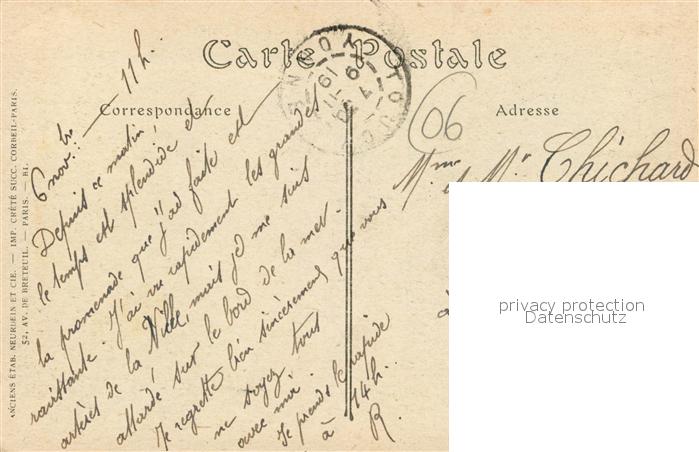 Carte Postale
Correspondance
Adresse
06
6 nov.bre — 11h.
Depuis ce matin
le temps est splendide et
la promenade que j'ai faite est
ravissante. J'ai vu rapidement les grandes
artères de la Ville, mais je me suis
attardé sur le bord de la mer.
Je regrette bien sincèrement que vous
ne soyez tous
avec moi.
Je prends le rapide
à 14h.
R.
Mme et Mr Chichard
à
ANCIENS ÉTAB. NEURDEIN ET CIE. — IMP. CRÉTÉ SUCC. CORBEIL-PARIS.
52, AV. DE BRETEUIL. — PARIS. — BI.
privacy protection
Datenschutz